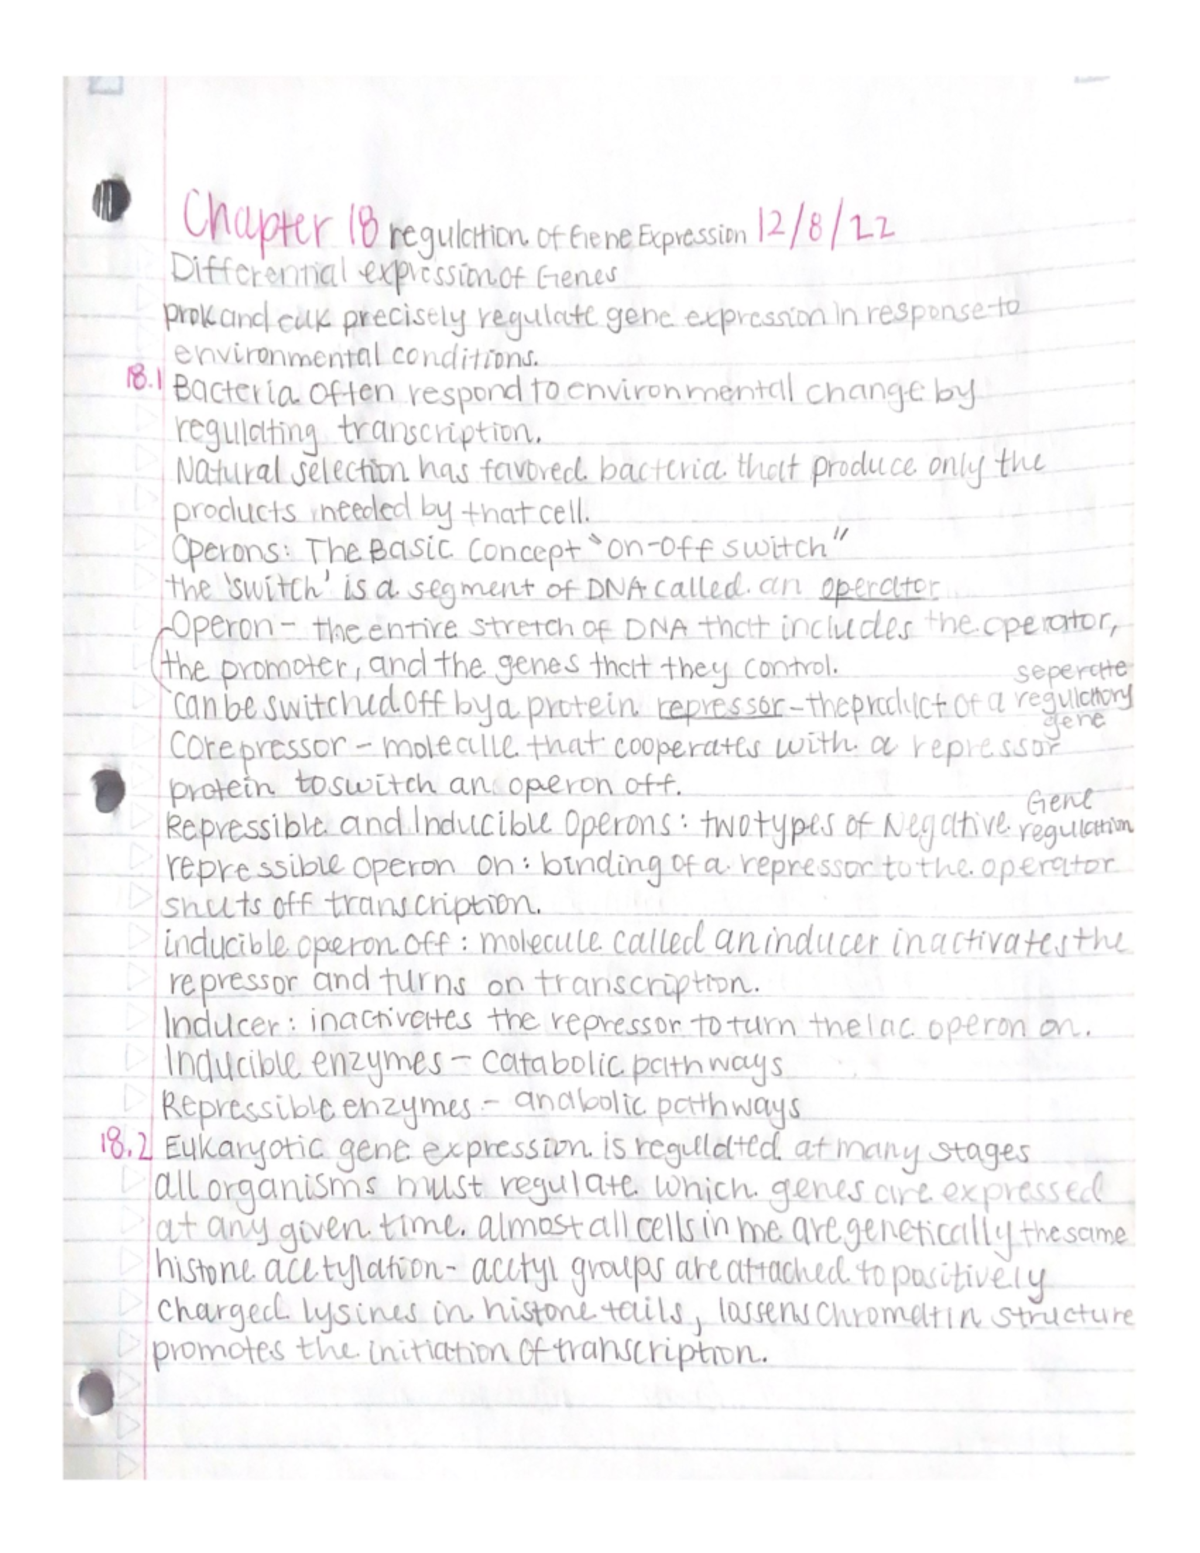 Chapter 18 regulation of Gene Expression 12/8/22
Differential expression of Genes
prok and euk precisely regulate gene expression in response to
environmental conditions.
18.1 Bacteria often respond to environmental change by
regulating transcription.
Natural selection has favored bacteria that produce only the
products needed by that cell.
Operons: The Basic Concept "on-off switch"
the 'switch' is a segment of DNA called an operator
Operon - the entire stretch of DNA that includes the operator,
the promoter, and the genes that they control.
can be switched off by a protein repressor - the product of a seperate regulatory gene
Corepressor - molecule that cooperates with a repressor
protein to switch an operon off.
Repressible and Inducible Operons: two types of Negative Gene regulation
repressible operon on: binding of a repressor to the operator
shuts off transcription.
inducible operon off: molecule called an inducer inactivates the
repressor and turns on transcription.
Inducer: inactivates the repressor to turn the lac operon on.
Inducible enzymes - catabolic pathways
Repressible enzymes - anabolic pathways
18.2 Eukaryotic gene expression is regulated at many stages
all organisms must regulate which genes are expressed
at any given time. almost all cells in me are genetically the same
histone acetylation - acetyl groups are attached to positively
charged lysines in histone tails, lossens chromatin structure
promotes the initiation of transcription.